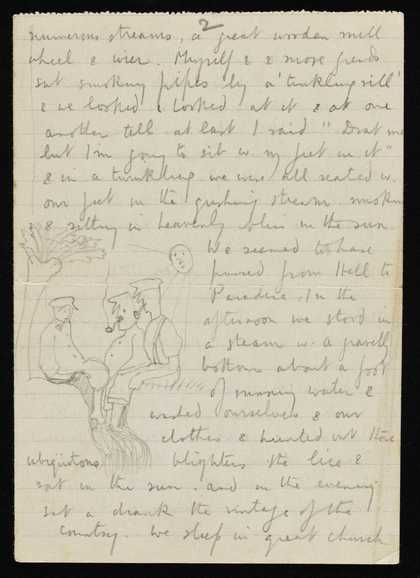 2
numerous streams, a great wooden mill
wheel & wier. Myself & 2 more friends
sat smoking pipes by a 'tinkling rill'
& we looked & looked at it & at one
another till at last I said "Drat me
but I'm going to sit w. my feet in it"
& in a twinkling we were all seated w.
our feet in the gushing stream. smoking
& sitting in heavenly bliss in the sun
We seemed to have
passed from Hell to
Paradise. In the
afternoon we stood in
a stream w. a gravelly
bottom about a foot
of running water &
washed ourselves & our
clothes & hunted out those
ubiquitous blighters the lice &
sat in the sun. and in the evening
sat & drank the vintage of the
country. We sleep in great church